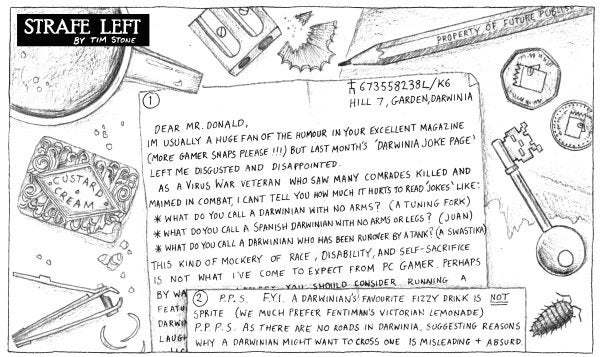 STRAFE LEFT
BY TIM STONE
PROPERTY OF FUTURE PUBLIS
CUSTARD
CREAM
1
673558238L/K6
HILL 7, GARDEN, DARWINIA
DEAR MR. DONALD,
IM USUALLY A HUGE FAN OF THE HUMOUR IN YOUR EXCELLENT MAGAZINE
(MORE GAMER SNAPS PLEASE !!!) BUT LAST MONTH'S 'DARWINIA JOKE PAGE'
LEFT ME DISGUSTED AND DISAPPOINTED.
AS A VIRUS WAR VETERAN WHO SAW MANY COMRADES KILLED AND
MAIMED IN COMBAT, I CANT TELL YOU HOW MUCH IT HURTS TO READ 'JOKES' LIKE:
* WHAT DO YOU CALL A DARWINIAN WITH NO ARMS? (A TUNING FORK)
* WHAT DO YOU CALL A SPANISH DARWINIAN WITH NO ARMS OR LEGS? (JUAN)
* WHAT DO YOU CALL A DARWINIAN WHO HAS BEEN RUNOVER BY A TANK? (A SWASTIKA)
THIS KIND OF MOCKERY OF RACE, DISABILITY, AND SELF-SACRIFICE
IS NOT WHAT I'VE COME TO EXPECT FROM PC GAMER. PERHAPS
BY WA YOU SHOULD CONSIDER RUNNING A
FEATU
DARWIN
LAUGH
2 P.P.S. F.Y.I. A DARWINIAN'S FAVOURITE FIZZY DRINK IS NOT
SPRITE (WE MUCH PREFER FENTIMAN'S VICTORIAN LEMONADE)
P.P.P.S. AS THERE ARE NO ROADS IN DARWINIA, SUGGESTING REASONS
WHY A DARWINIAN MIGHT WANT TO CROSS ONE IS MISLEADING + ABSURD.